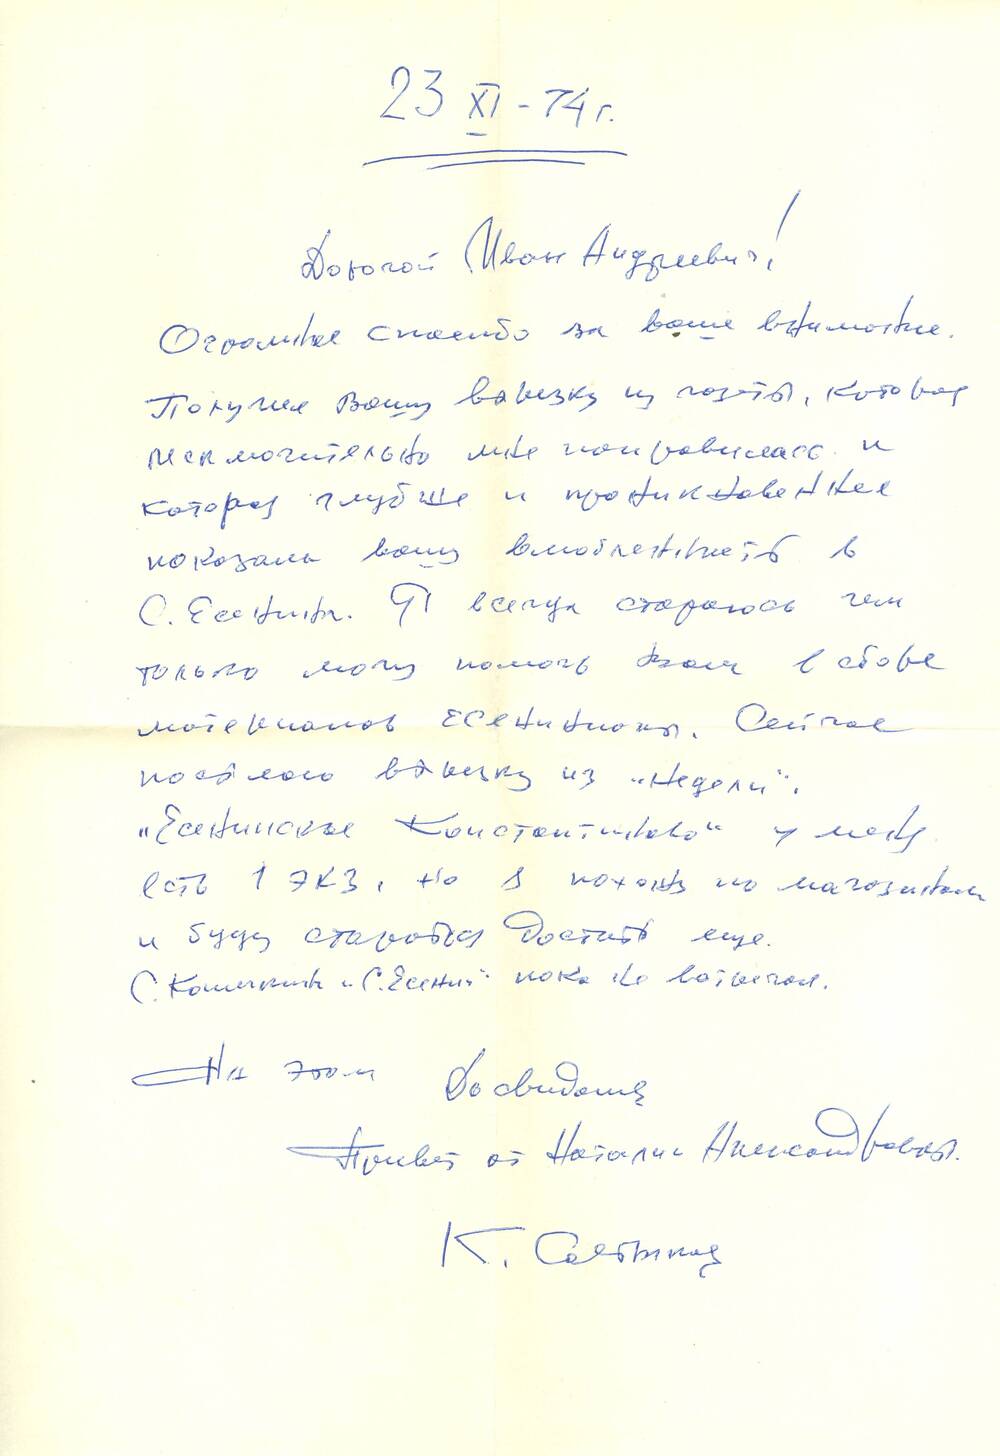 23 XI - 74 г.
Дорогой Иван Андреевич!
Огромное спасибо за ваше внимание.
Получил Вашу вырезку из газеты, которая
исключительно мне понравилась и
которая глубже и проникновеннее
показала вашу влюбленность в
С. Есенина. Я всегда стараюсь чем
только могу помочь Вам в сборе
материалов есенинианы. Сейчас
посылаю вырезку из "Недели".
"Есенинское Константиново" у меня
есть 1 экз, но я похожу по магазинам
и буду стараться достать еще.
С. Кошечкин "С. Есенин" пока не встречал.
На этом До свидания
Привет от Наталии Александровны.
К.